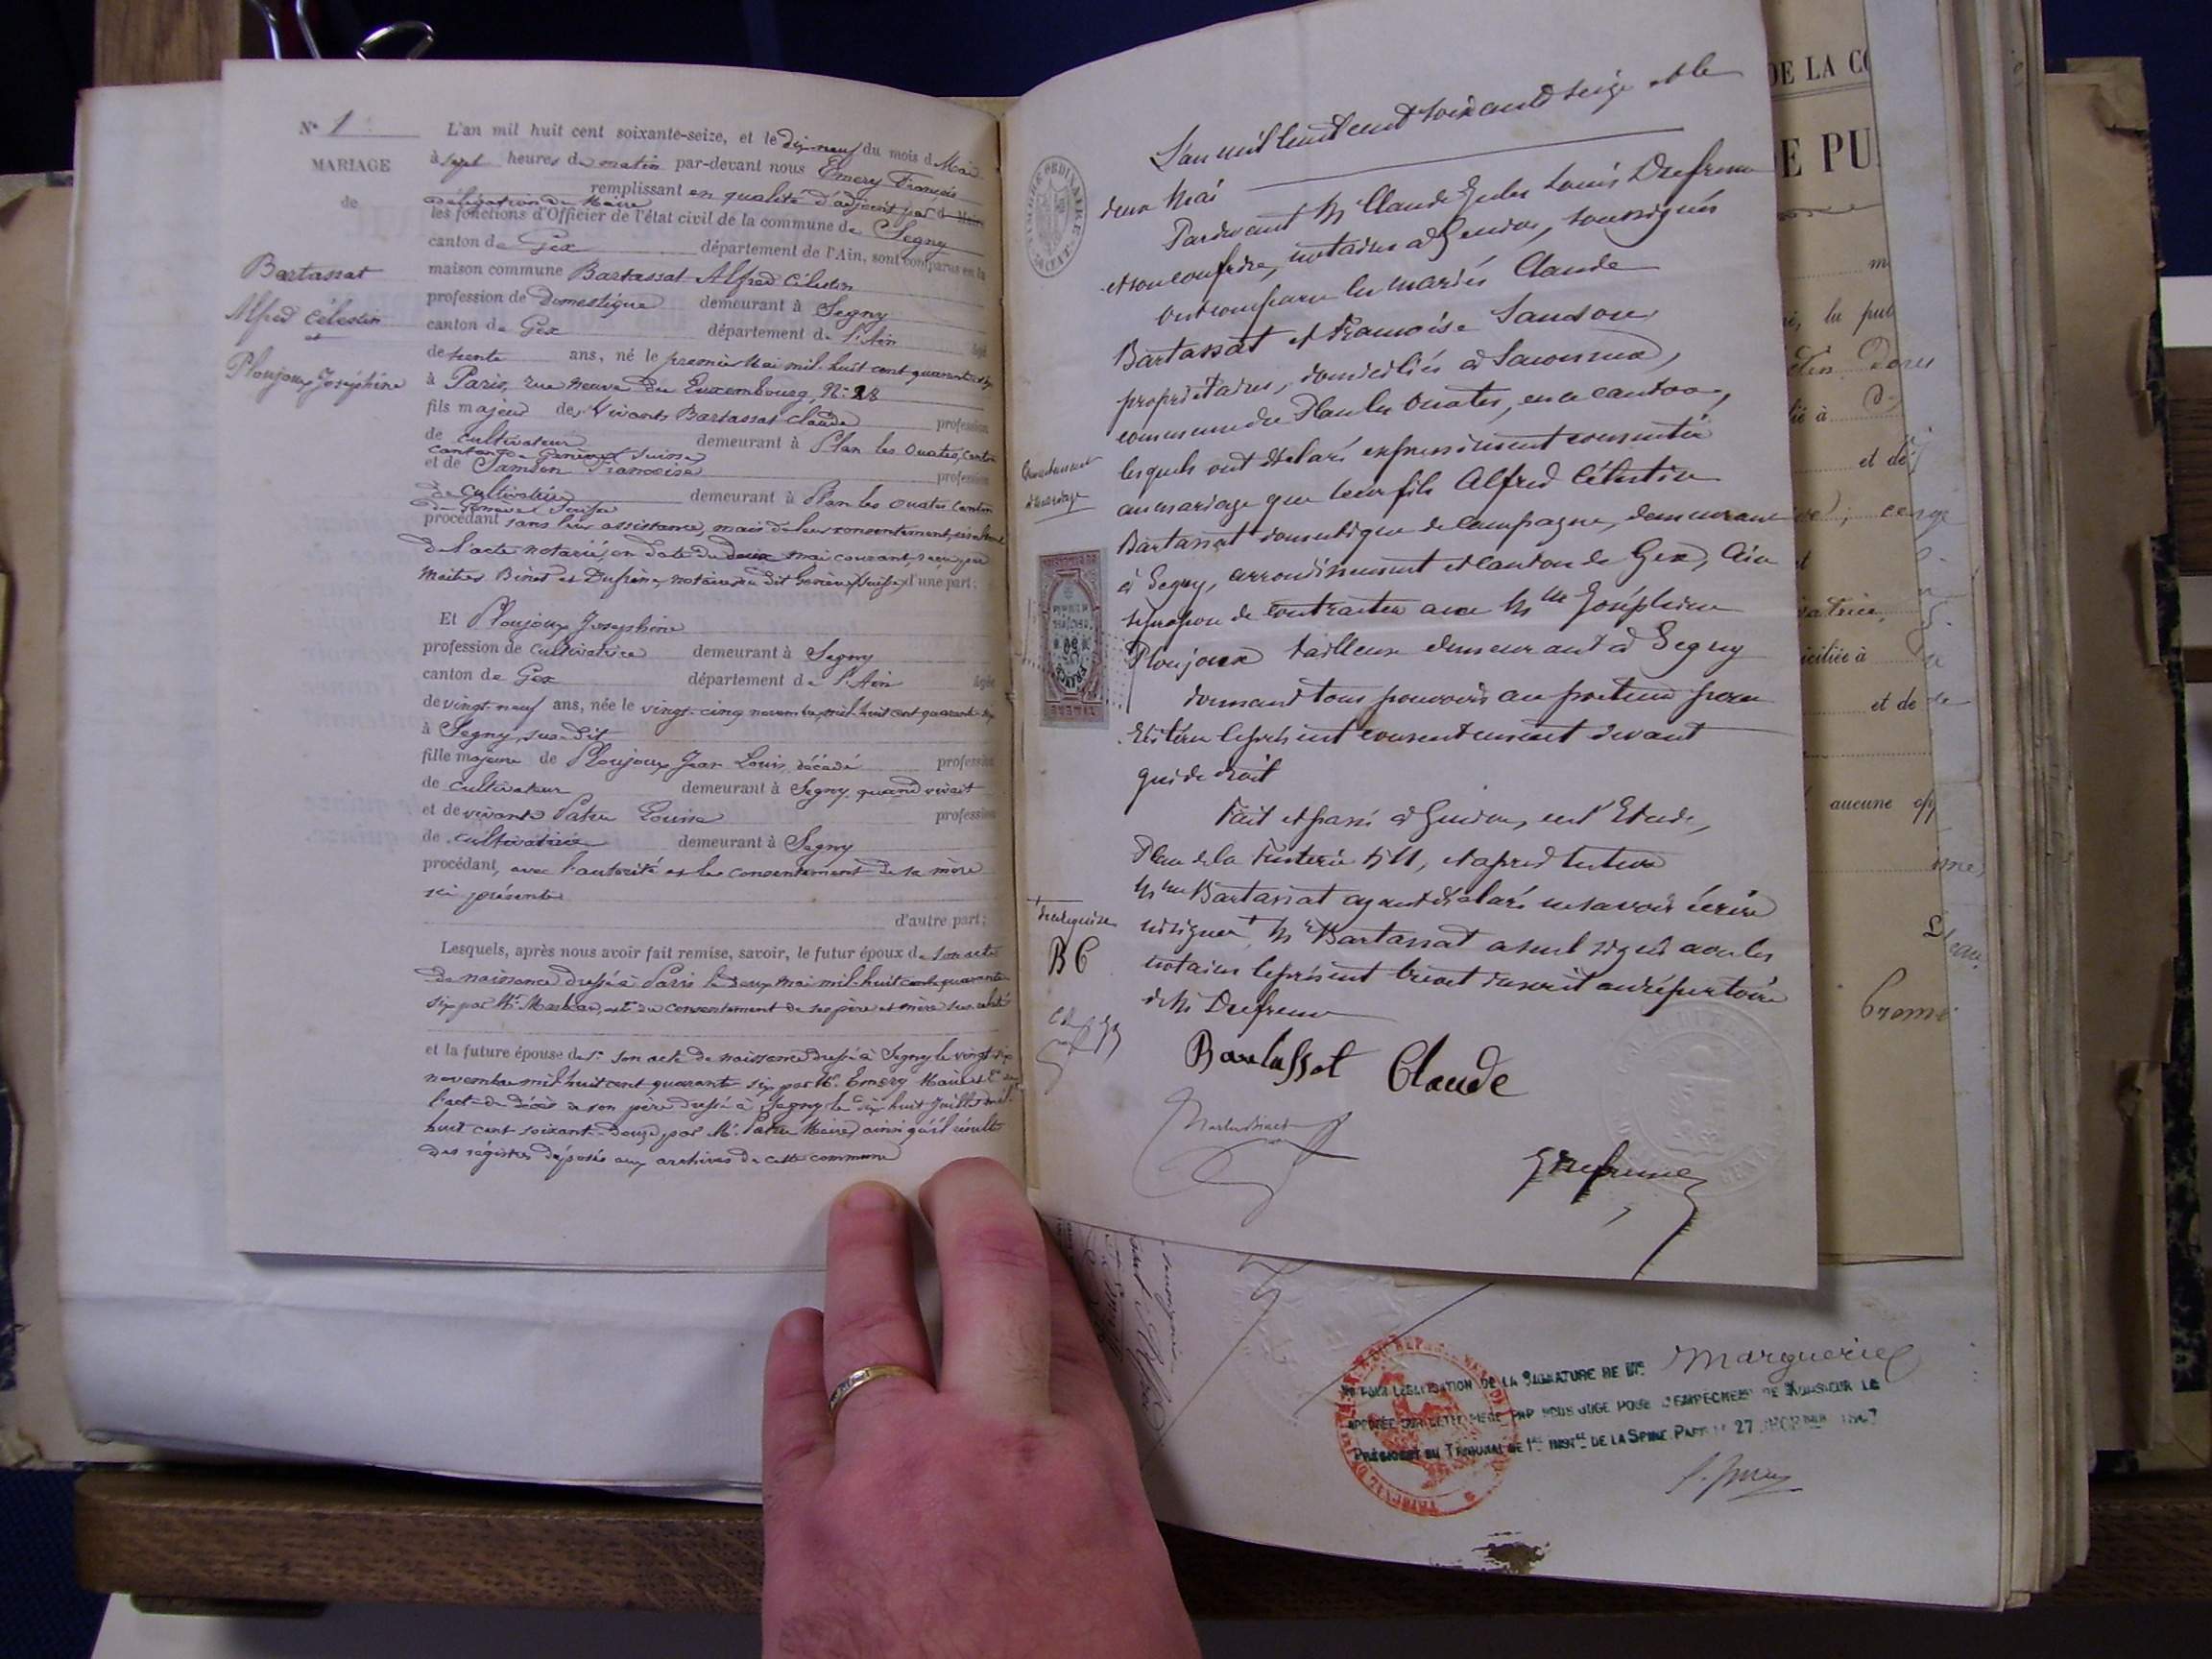 N° 1
MARIAGE
de
Bartassat
Alfred Célestin
et
Ploujoux Joséphine
L'an mil huit cent soixante-seize, et le dix-neuf du mois de Mai
à sept heures du matin par-devant nous Emery François
remplissant en qualité d'adjoint par
délégation du Maire
les fonctions d'Officier de l'état civil de la commune de Segny
canton de Gex département de l'Ain, sont comparus en la
maison commune Bartassat Alfred Célestin
profession de Domestique demeurant à Segny
canton de Gex département de l'Ain âgé
de trente ans, né le premier Mai mil huit cent quarante six
à Paris, rue neuve du Luxembourg, N° 28
fils majeur de vivants Bartassat Claude profession
de cultivateur demeurant à Plan les Ouates, canton
canton de Genève Suisse
et de Sandon Francoise profession
de cultivatrice demeurant à Plan les Ouates canton
de Geneve Suisse
procédant sans leur assistance, mais de leur consentement, résultant
de l'acte notarié, en date du deux mai courant, reçu par
Maitres Binet et Dufresne, notaires au dit Genève (Suisse) d'une part;
Et Ploujoux Josephine
profession de cultivatrice demeurant à Segny
canton de Gex département de l'Ain âgée
de vingt-neuf ans, née le vingt-cinq novembre mil-huit cent quarante-six
à Segny, sus-dit
fille majeure de Ploujoux Jean Louis, décédé profession
de cultivateur demeurant à Segny quand vivait
et de vivante Patru Louise profession
de cultivatrice demeurant à Segny
procédant, avec l'autorité et le consentement de sa mère
ici présente
d'autre part;
Lesquels, après nous avoir fait remise, savoir, le futur époux de son acte
de naissance dressé à Paris le deux mai mil huit cent quarante
six par Mr. et du consentement de ses père et mère sus-relaté
et la future épouse de son acte de naissance dressé à Segny le vingt-six
novembre mil huit cent quarante-six par Mr. Emery Maire et
l'acte de décès de son père dressé à Segny le dix huit Juillet mil
huit cent soixante-douze, par Mr. Patru Maire, ainsi qu'il résulte
des régistres déposés aux archives de cette commune
TIMBRE ORDINAIRE
L'an mil huit cent soixante seize et le
deux Mai
Pardevant Me Claude Jules Louis Dufresne
et son confrère, notaires à Genève, soussignés
Ont comparu les mariés Claude
Bartassat et Françoise Sandon,
propriétaires, domiciliés à
commune de Plan les Ouates, en ce canton,
lesquels ont déclaré expressément consentir
au mariage que leur fils Alfred Célestin
Bartassat domestique de campagne, demeurant
à Segny, arrondissement et canton de Gex, Ain
se propose de contracter avec Mlle Joséphine
Ploujoux tailleuse demeurant à Segny
donnant tous pouvoirs au porteur pour
réitérer le présent consentement devant
qui de droit
Fait et passé à Genève, en l'Etude,
Place de la Fusterie No 11, et après lecture
Mme Bartassat ayant déclaré ne savoir écrire
ni signer, Mr Bartassat a seul signé avec les
notaires le présent brevet inscrit au répertoire
de Me Dufresne
Consentement
à mariage
de ce requise
BC
Bartassat Claude
DE LA CO
E PU
la pub
et de
et de
aucune op
Margueriel
VU POUR LÉGALISATION DE LA SIGNATURE DE Mr
APPOSÉE SUR CETTE PIÈCE PAR NOUS JUGE POUR L'EMPÊCHEMENT DE MONSIEUR LE
PRÉSIDENT DU TRIBUNAL DE 1re INSTce DE LA SEINE. PARIS LE 27